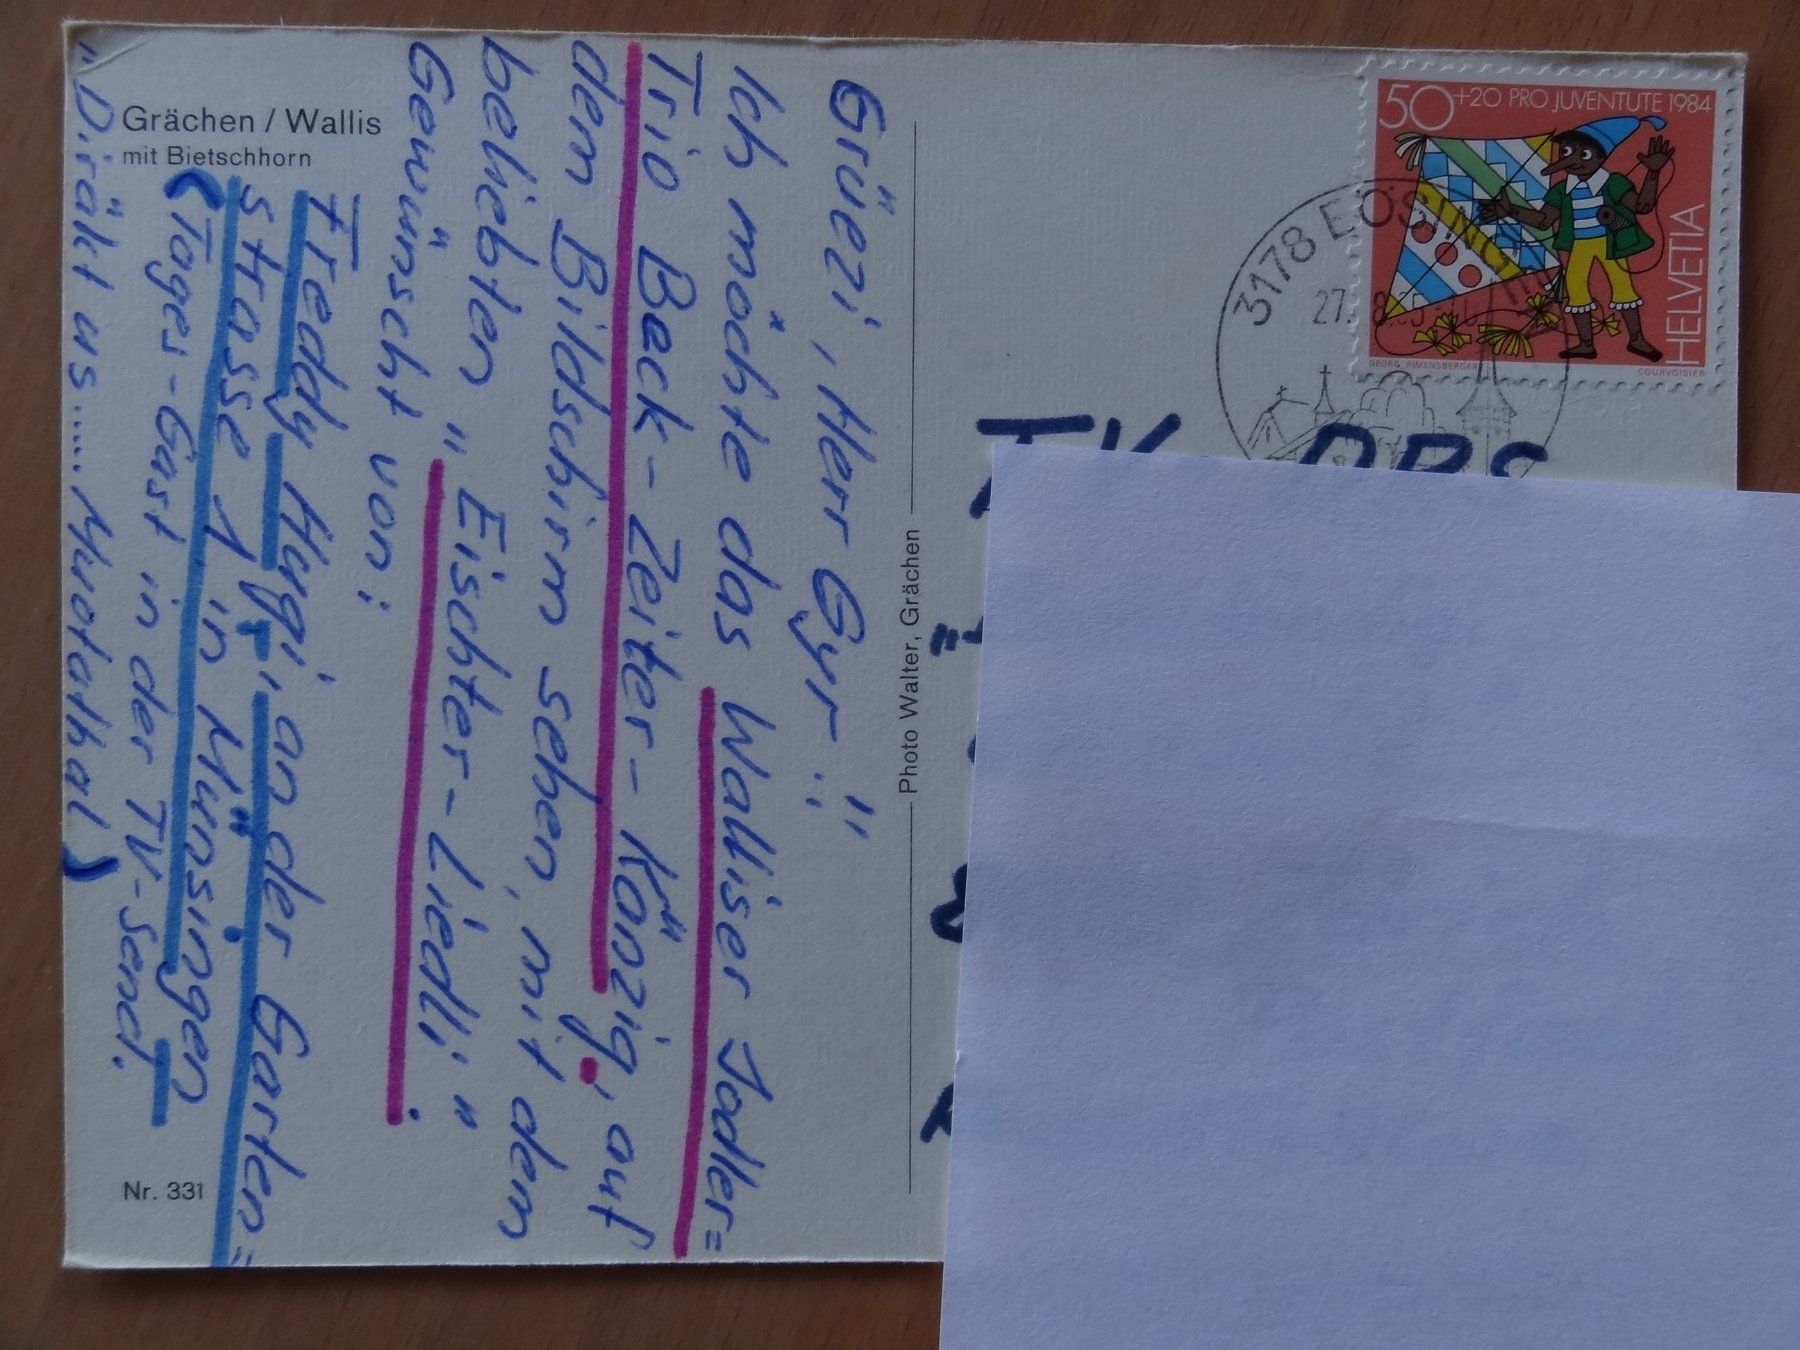 Grächen / Wallis
mit Bietschhorn
Nr. 331
Photo Walter, Grächen
50 +20 PRO JUVENTUTE 1984
HELVETIA
GEORG RIMENSBERGER
COURVOISIER
3178 BÖSINGEN
27. 8.85
"Grüezi, Herr Gyr!"
Ich möchte das Walliser Jodler=
Trio Back-Zeiter-Känzig, auf
dem Bildschirm sehen, mit dem
beliebten "Eischter-Liedli".
Gewünscht von:
Freddy Hugi, an der Garten=
strasse 1, in Münsingen
(Tages-Gast in der TV-Send.
"Diräkt us......Muotathal)